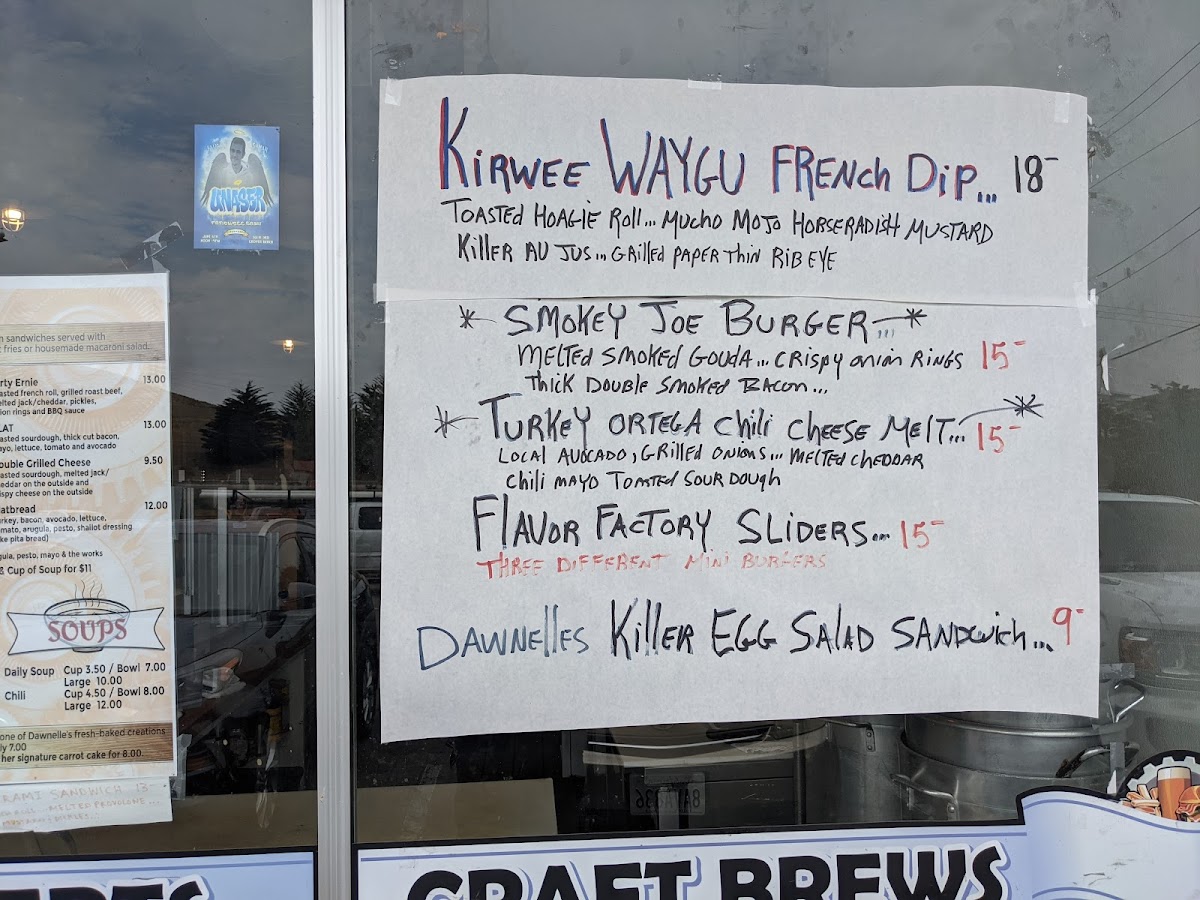 Kirwee WAYGU FRENCH DiP... 18-
TOASTED HOAGIE ROLL... MUCHO MOJO HORSERADISH MUSTARD
KILLER AU JUS... GRILLED PAPER THIN RIB EYE
* SMOKEY JOE BURGER... *
MELTED SMOKED GOUDA... CRISPY ONION RINGS 15-
THICK DOUBLE SMOKED BACON...
* TURKEY ORTEGA CHILI CHEESE MELT... * 15-
LOCAL AVOCADO, GRILLED ONIONS... MELTED CHEDDAR
CHILI MAYO TOASTED SOUR DOUGH
FLAVOR FACTORY SLIDERS... 15-
THREE DIFFERENT MINI BURGERS
DAWNELLES KILLER EGG SALAD SANDWICH... 9-
CRAFT BREWS
sandwiches served with
fries or housemade macaroni salad.
rty Ernie 13.00
asted french roll, grilled roast beef,
elted jack/cheddar, pickles,
ion rings and BBQ sauce
LAT 13.00
asted sourdough, thick cut bacon,
ayo, lettuce, tomato and avocado
ouble Grilled Cheese 9.50
asted sourdough, melted jack/
eddar on the outside and
ispy cheese on the outside
atbread 12.00
urkey, bacon, avocado, lettuce,
omato, arugula, pesto, shallot dressing
ke pita bread)
gula, pesto, mayo & the works
& Cup of Soup for $11
SOUPS
Daily Soup Cup 3.50 / Bowl 7.00
Large 10.00
Chili Cup 4.50 / Bowl 8.00
Large 12.00
one of Dawnelle's fresh-baked creations
ly 7.00
her signature carrot cake for 8.00.
RAMI SANDWICH 13-
MELTED PROVOLONE...